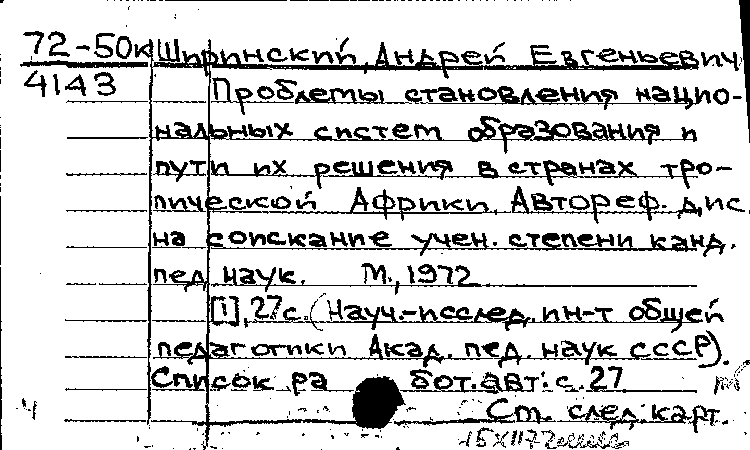 72-50к Ширинский, Андрей Евгеньевич
4143 Проблемы становления нацио-
нальных систем образования и
пути их решения в странах тро-
пической Африки. Автореф. дис.
на соискание учен. степени канд.
пед. наук. М., 1972
[1], 27 с. (Науч.-исслед. ин-т общей
педагогики Акад. пед. наук СССР).
Список работ. авт.: с. 27
Ч См. след. карт.